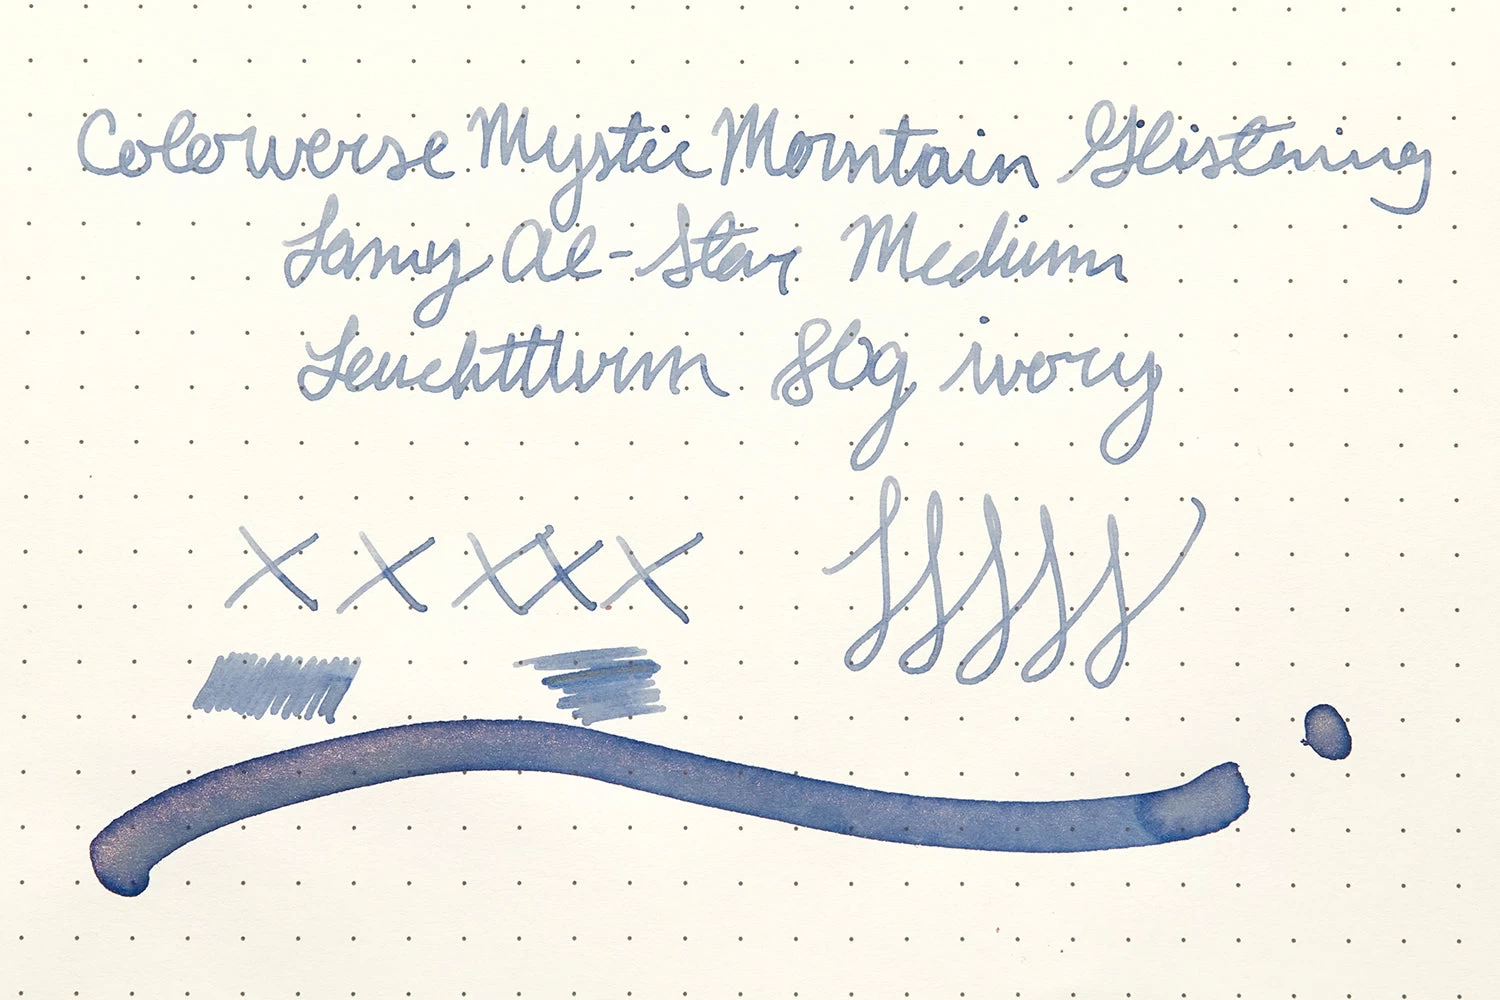 Colorverse Mystic Mountain Glistening
Lamy Al-Star Medium
Leuchtturm 80g ivory
x x x x x